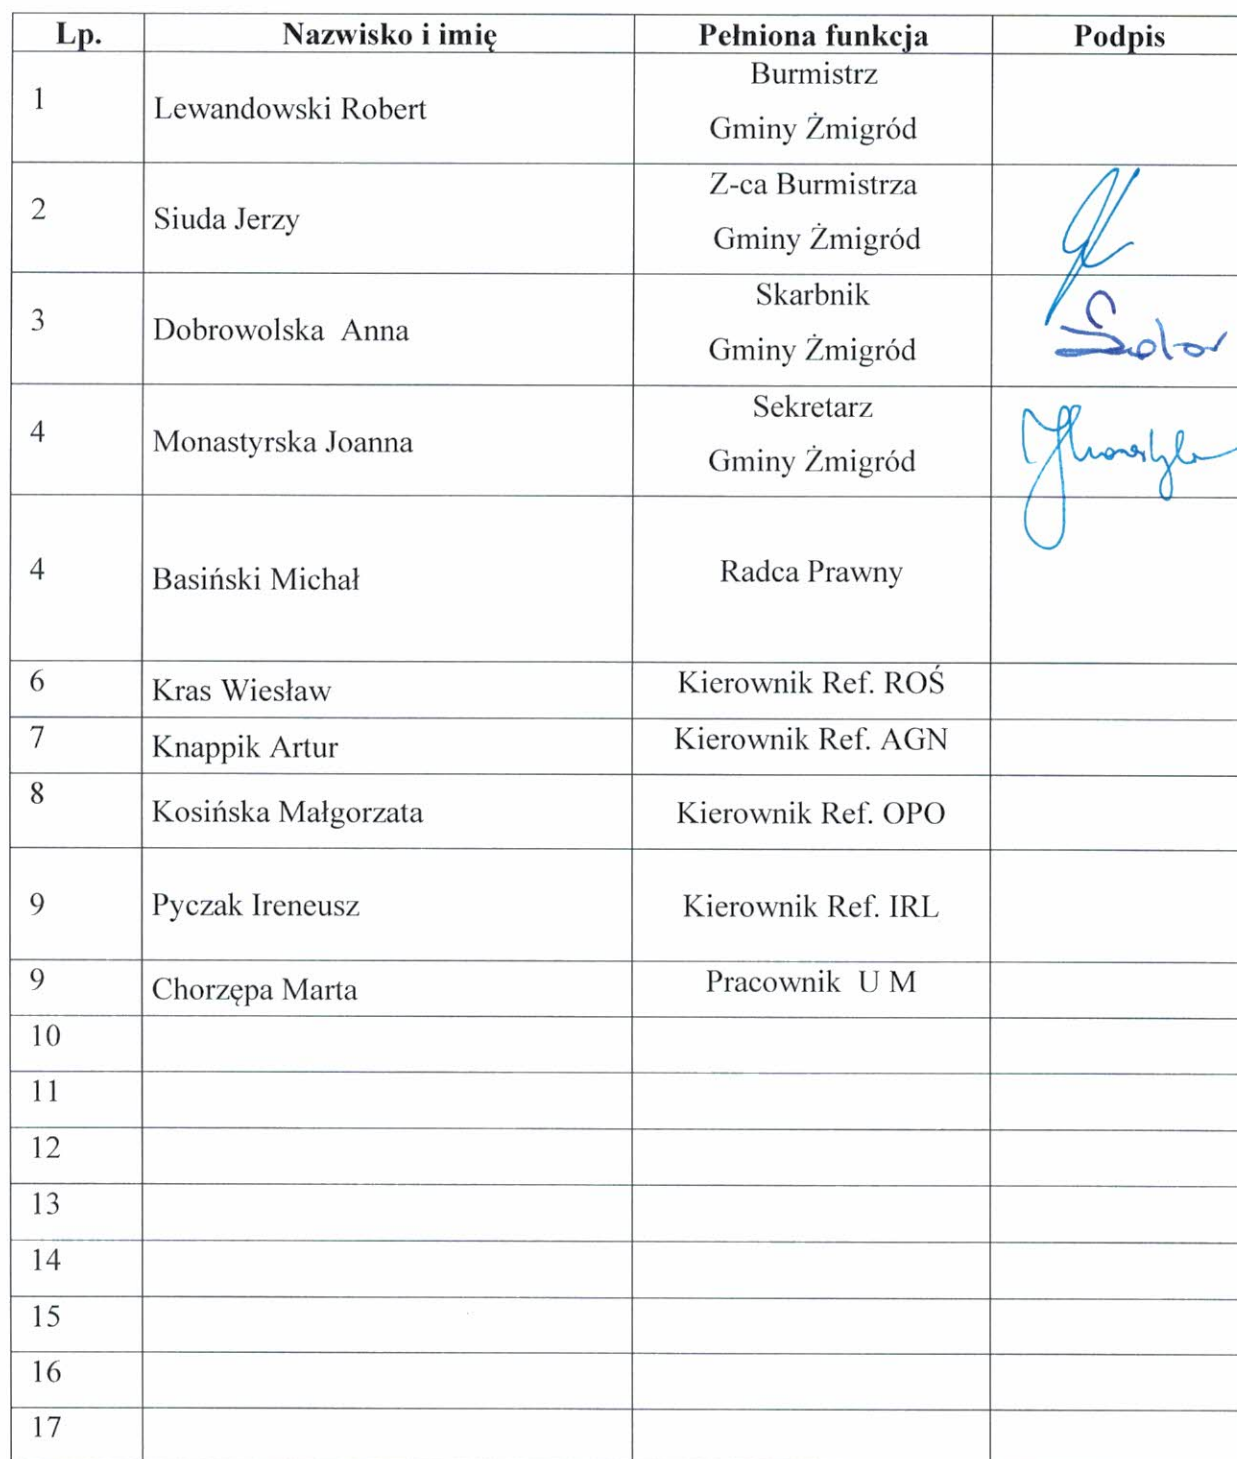 Lp. Nazwisko i imię Pełniona funkcja Podpis
Burmistrz
1 Lewandowski Robert
Gminy Żmigród
Z-ca Burmistrza
2 Siuda Jerzy
Gminy Żmigród
Skarbnik
3 Dobrowolska Anna
Gminy Żmigród
Sekretarz
4 Monastyrska Joanna
Gminy Żmigród
4 Basiński Michał Radca Prawny
6 Kras Wiesław Kierownik Ref. ROŚ
7 Knappik Artur Kierownik Ref. AGN
8 Kosińska Małgorzata Kierownik Ref. OPO
9 Pyczak Ireneusz Kierownik Ref. IRL
9 Chorzępa Marta Pracownik U M
10
11
12
13
14
15
16
17